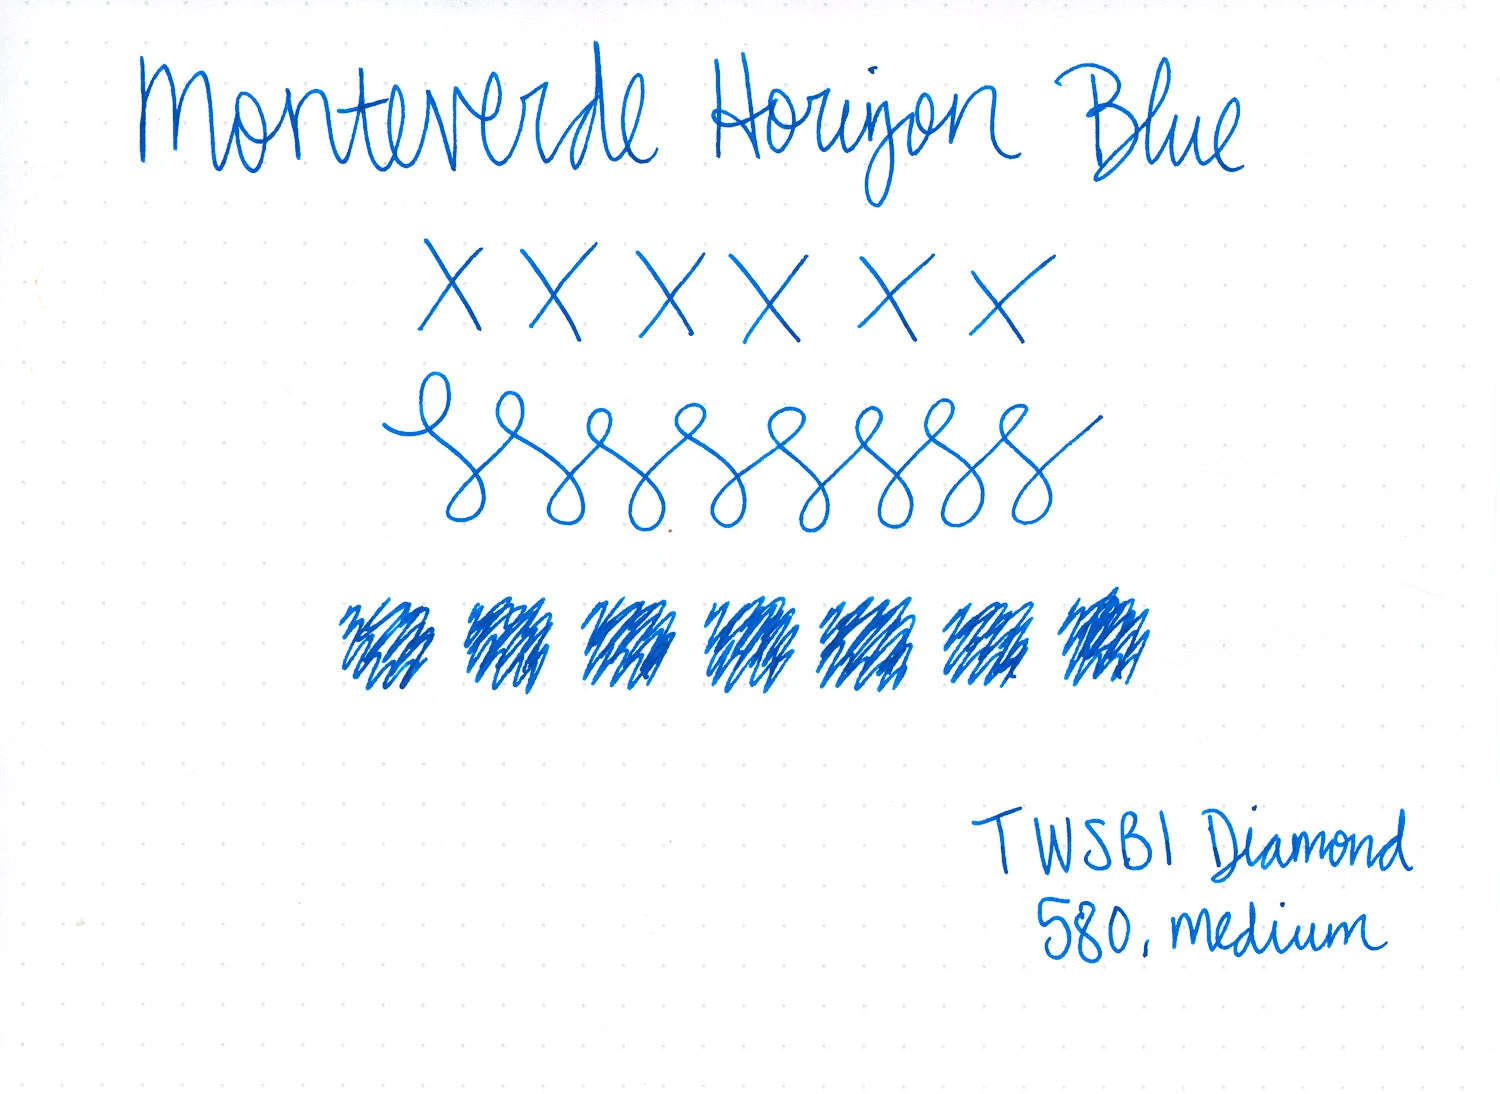 Monteverde Horizon Blue
X X X X X X
TWSBI Diamond
580, medium